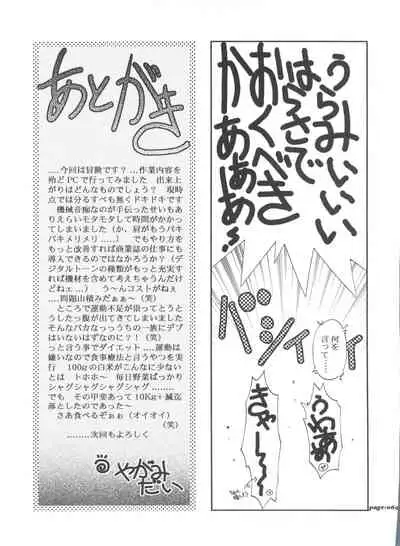 うらみいいい
はらさで
おくべき
かあぁぁ〜
バシイイ
何を
言って……
うわあ
きゃー〜
page-064
あとがき
‥‥今回は冒険です？‥‥作業内容を
殆どPCで行ってみました　出来上
がりはどんなものでしょう？　現時
点では分るすべも無くドキドキです
機械音痴なのが手伝ったせいもあり
えらいモタモタして時間がかかっ
てしまいました（か、肩がもうバキ
バキメリメリ……）　でもやり方を
もっと改善すれば商業誌の仕事にも
導入できるのではなかろうか？（デ
ジタルトーンの種類がもっと充実す
れば機材を含めて考えちゃうんだけ
どねェ…）　う〜んコストがねぇ
‥‥問題山積みだぁぁ〜（笑）
ところで運動不足が祟ってとうと
うしたっ腹が出てきてしまいました
そんなバカなっっうちの一族にデブ
はいないはずなのに?!（笑）
っと言う事でダイエット‥‥運動は
嫌いなので食事療法と言うやつを実
行　100gの白米がこんなに少ない
とは　トホホ〜　毎日野菜ばっかり
シャグシャグシャグシャグ……‥
でも　その甲斐あって10Kg↓減迄
落としたのであった〜
さあ食べるぞぉぉ（オイオイ）
（笑）
………次回もよろしく
やがみ
だい